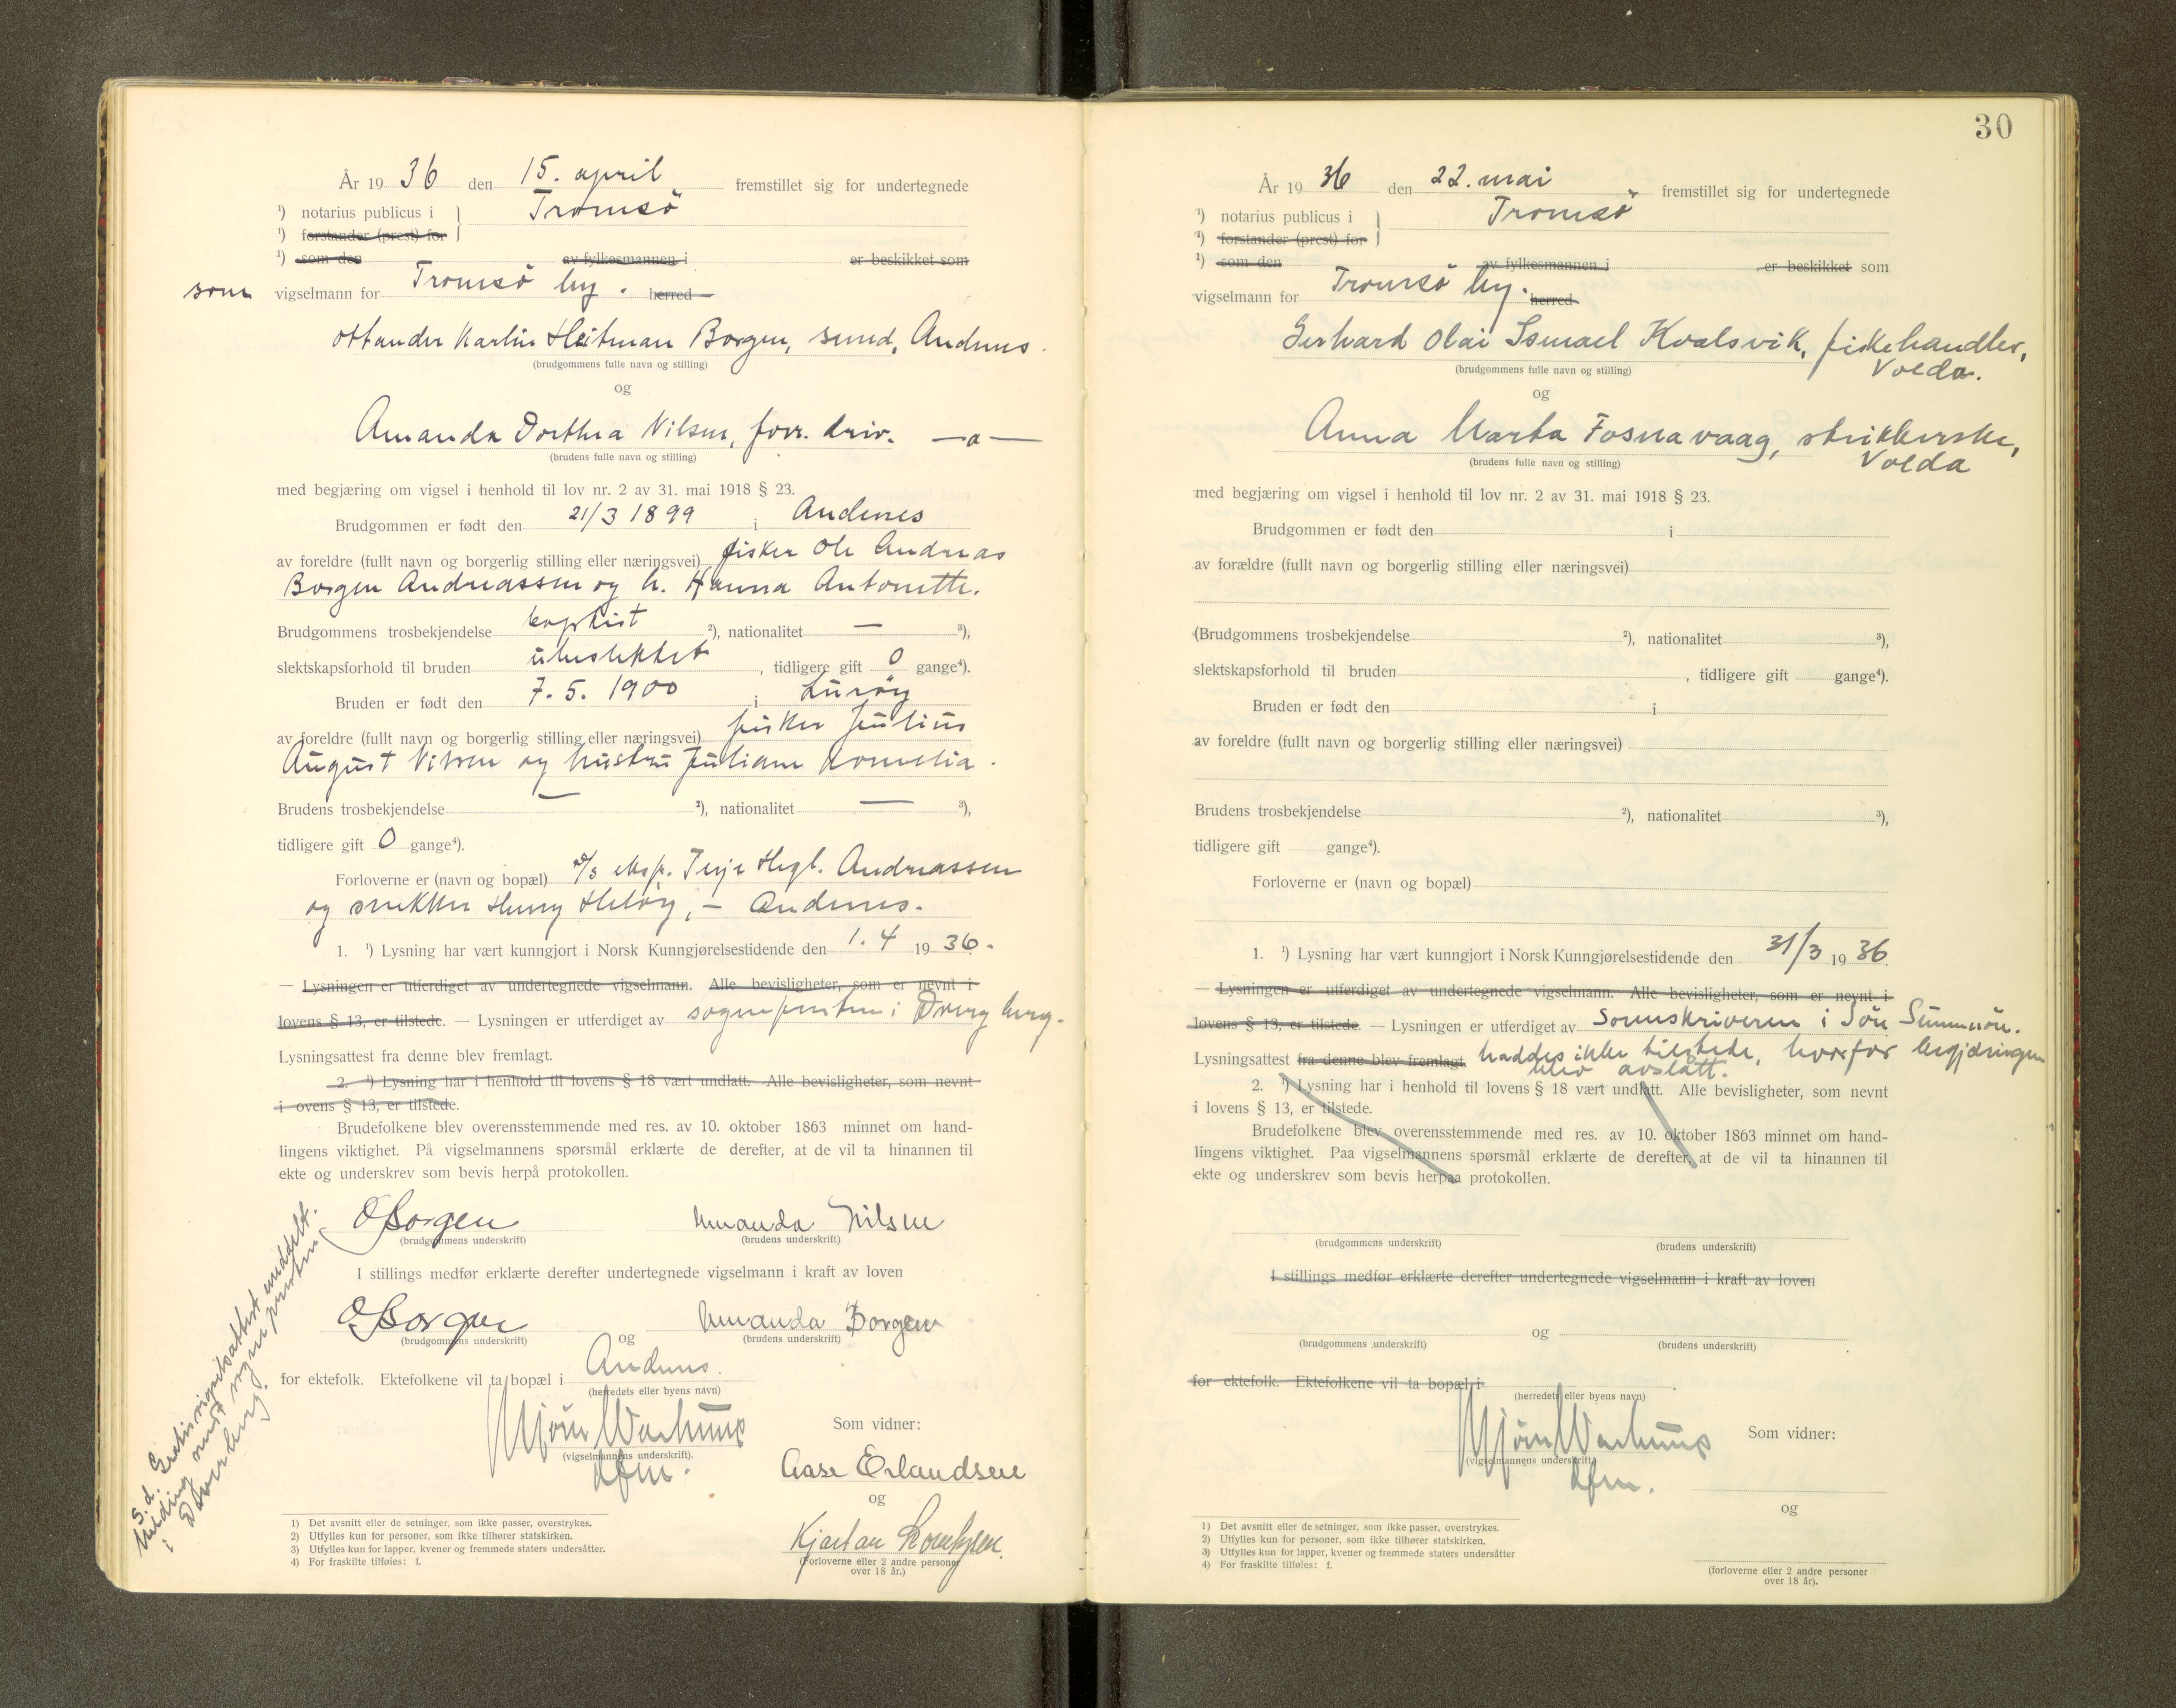 År 19 36 den 15. april fremstillet sig for undertegnede
¹) notarius publicus i Tromsö
¹) forstander (prest) for
¹) som den av fylkesmannen i er beskikket som
som vigselmann for Tromsö by. herred
Ottander Martin Heitman Borgen, smed, Andenes.
(brudgommens fulle navn og stilling)
og
Amanda Dorthea Nilsen, forr. driv. —a—
(brudens fulle navn og stilling)
med begjæring om vigsel i henhold til lov nr. 2 av 31. mai 1918 § 23.
Brudgommen er født den 21/3 1899 i Andenes
av foreldre (fullt navn og borgerlig stilling eller næringsvei) fisker Ole Andreas
Borgen Andreassen og h. Hanna Antonette.
Brudgommens trosbekjendelse baptist ²), nationalitet — ³),
slektskapsforhold til bruden ubeslektet, tidligere gift 0 gange⁴).
Bruden er født den 7. 5. 1900 i Luröy
av foreldre (fullt navn og borgerlig stilling eller næringsvei) fisker Julius
August Nilsen og hustru Juliane Kornelia.
Brudens trosbekjendelse — ²), nationalitet — ³),
tidligere gift 0 gange⁴).
Forloverne er (navn og bopæl) eksp. Terje Andreassen
og snekker Henry Helöy, – Andenes.
1. ¹) Lysning har vært kunngjort i Norsk Kunngjørelsestidende den 1. 4 19 36.
— Lysningen er utferdiget av undertegnede vigselmann. Alle bevisligheter, som er nevnt i
lovens § 13, er tilstede. — Lysningen er utferdiget av sogneprsten i Dverberg.
Lysningsattest fra denne blev fremlagt.
2. ¹) Lysning har i henhold til lovens § 18 vært undlatt. Alle bevisligheter, som nevnt
i ovens § 13, er tilstede.
Brudefolkene blev overensstemmende med res. av 10. oktober 1863 minnet om hand-
lingens viktighet. På vigselmannens spørsmål erklærte de derefter, at de vil ta hinannen til
ekte og underskrev som bevis herpå protokollen.
OBorgen Amanda Nilsen
(brudgommens underskrift) (brudens underskrift)
I stillings medfør erklærte derefter undertegnede vigselmann i kraft av loven
OBorgen og Amanda Borgen
(brudgommens underskrift) (brudens underskrift)
for ektefolk. Ektefolkene vil ta bopæl i Andenes.
(herredets eller byens navn)
(vigselmannens underskrift).
Som vidner:
dfm.
Aase Erlandsen
og
Kjartan
(Forloverne eller 2 andre personer
over 18 år.)
S. d. Gratis vigselsattest meddelt.
Melding sendt sogneprsten
i Dverberg.
1) Det avsnitt eller de setninger, som ikke passer, overstrykes.
2) Utfylles kun for personer, som ikke tilhører statskirken.
3) Utfylles kun for lapper, kvener og fremmede staters undersåtter.
4) For fraskilte tilføies: f.
30
År 19 36 den 22. mai fremstillet sig for undertegnede
¹) notarius publicus i Tromsö
¹) forstander (prest) for
¹) som den av fylkesmannen i er beskikket som
vigselmann for Tromsö by. herred
Gerhard Olai Ismael Kvalsvik, fiskehandler,
Volda.
(brudgommens fulle navn og stilling)
og
Anna Marta Fosnavaag, strikkerske,
Volda
(brudens fulle navn og stilling)
med begjæring om vigsel i henhold til lov nr. 2 av 31. mai 1918 § 23.
Brudgommen er født den i
av forældre (fullt navn og borgerlig stilling eller næringsvei)
(Brudgommens trosbekjendelse ²), nationalitet ³),
slektskapsforhold til bruden , tidligere gift gange⁴).
Bruden er født den i
av foreldre (fullt navn og borgerlig stilling eller næringsvei)
Brudens trosbekjendelse ²), nationalitet ³),
tidligere gift gange⁴).
Forloverne er (navn og bopæl)
1. ¹) Lysning har vært kunngjort i Norsk Kunngjørelsestidende den 31/3 19 36.
— Lysningen er utferdiget av undertegnede vigselmann. Alle bevisligheter, som er nevnt i
lovens § 13, er tilstede. — Lysningen er utferdiget av Sorenskriveren i Sör Sunnmör.
Lysningsattest fra denne blev fremlagt. haddes ikke tilstede, hvorfor begjæringen
blev avslått.
2. ¹) Lysning har i henhold til lovens § 18 vært undlatt. Alle bevisligheter, som nevnt
i lovens § 13, er tilstede.
Brudefolkene blev overensstemmende med res. av 10. oktober 1863 minnet om hand-
lingens viktighet. Paa vigselmannens spørsmål erklærte de derefter, at de vil ta hinannen til
ekte og underskrev som bevis herpaa protokollen.
(brudgommens underskrift) (brudens underskrift)
I stillings medfør erklærte derefter undertegnede vigselmann i kraft av loven
og
(brudgommens underskrift) (brudens underskrift)
for ektefolk. Ektefolkene vil ta bopæl i
(herredets eller byens navn)
Som vidner:
(vigselmannens underskrift)
dfm.
og
1) Det avsnitt eller de setninger, som ikke passer, overstrykes.
2) Utfylles kun for personer, som ikke tilhører statskirken.
3) Utfylles kun for lapper, kvener og fremmede staters undersåtter
4) For fraskilte tilføies: f.
(forloverne eller 2 andre personer
over 18 år).